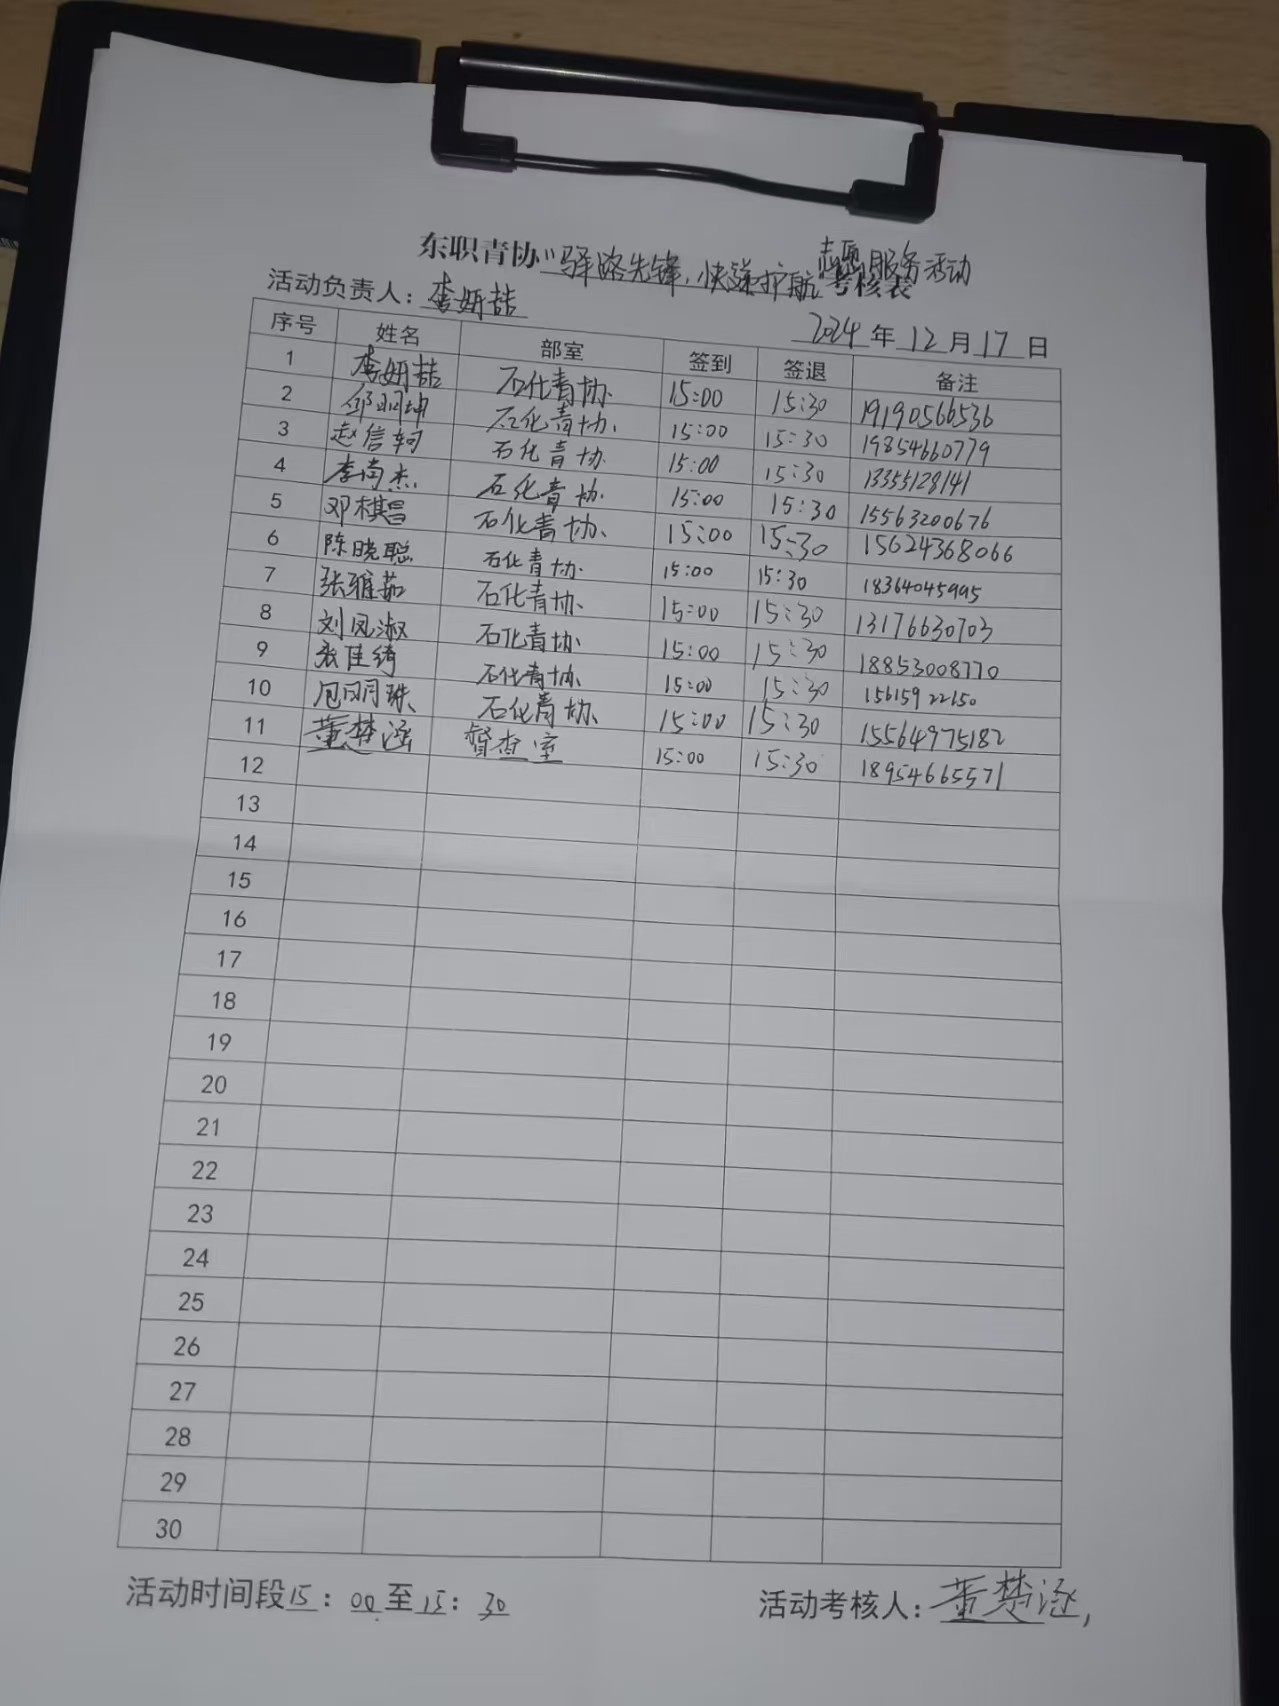 东职青协“驿路先锋,快递护航”志愿服务活动考核表
活动负责人:李妍喆
2024年12月17日
序号 姓名 部室 签到 签退 备注
1 李妍喆 石化青协 15:00 15:30 19190566536
2 邱明坤 石化青协 15:00 15:30 19854660779
3 赵信轲 石化青协 15:00 15:30 13355128141
4 李尚杰 石化青协 15:00 15:30 15563200676
5 邓棋昌 石化青协 15:00 15:30 15624368066
6 陈晓聪 石化青协 15:00 15:30 18364045995
7 张雅茹 石化青协 15:00 15:30 13176630703
8 刘凤淑 石化青协 15:00 15:30 18853008770
9 张佳绮 石化青协 15:00 15:30 15615922150
10 明珠 石化青协 15:00 15:30 15564975182
11 董楚涵 督查室 15:00 15:30 18954665571
12
13
14
15
16
17
18
19
20
21
22
23
24
25
26
27
28
29
30
活动时间段15:00至15:30 活动考核人:董楚涵